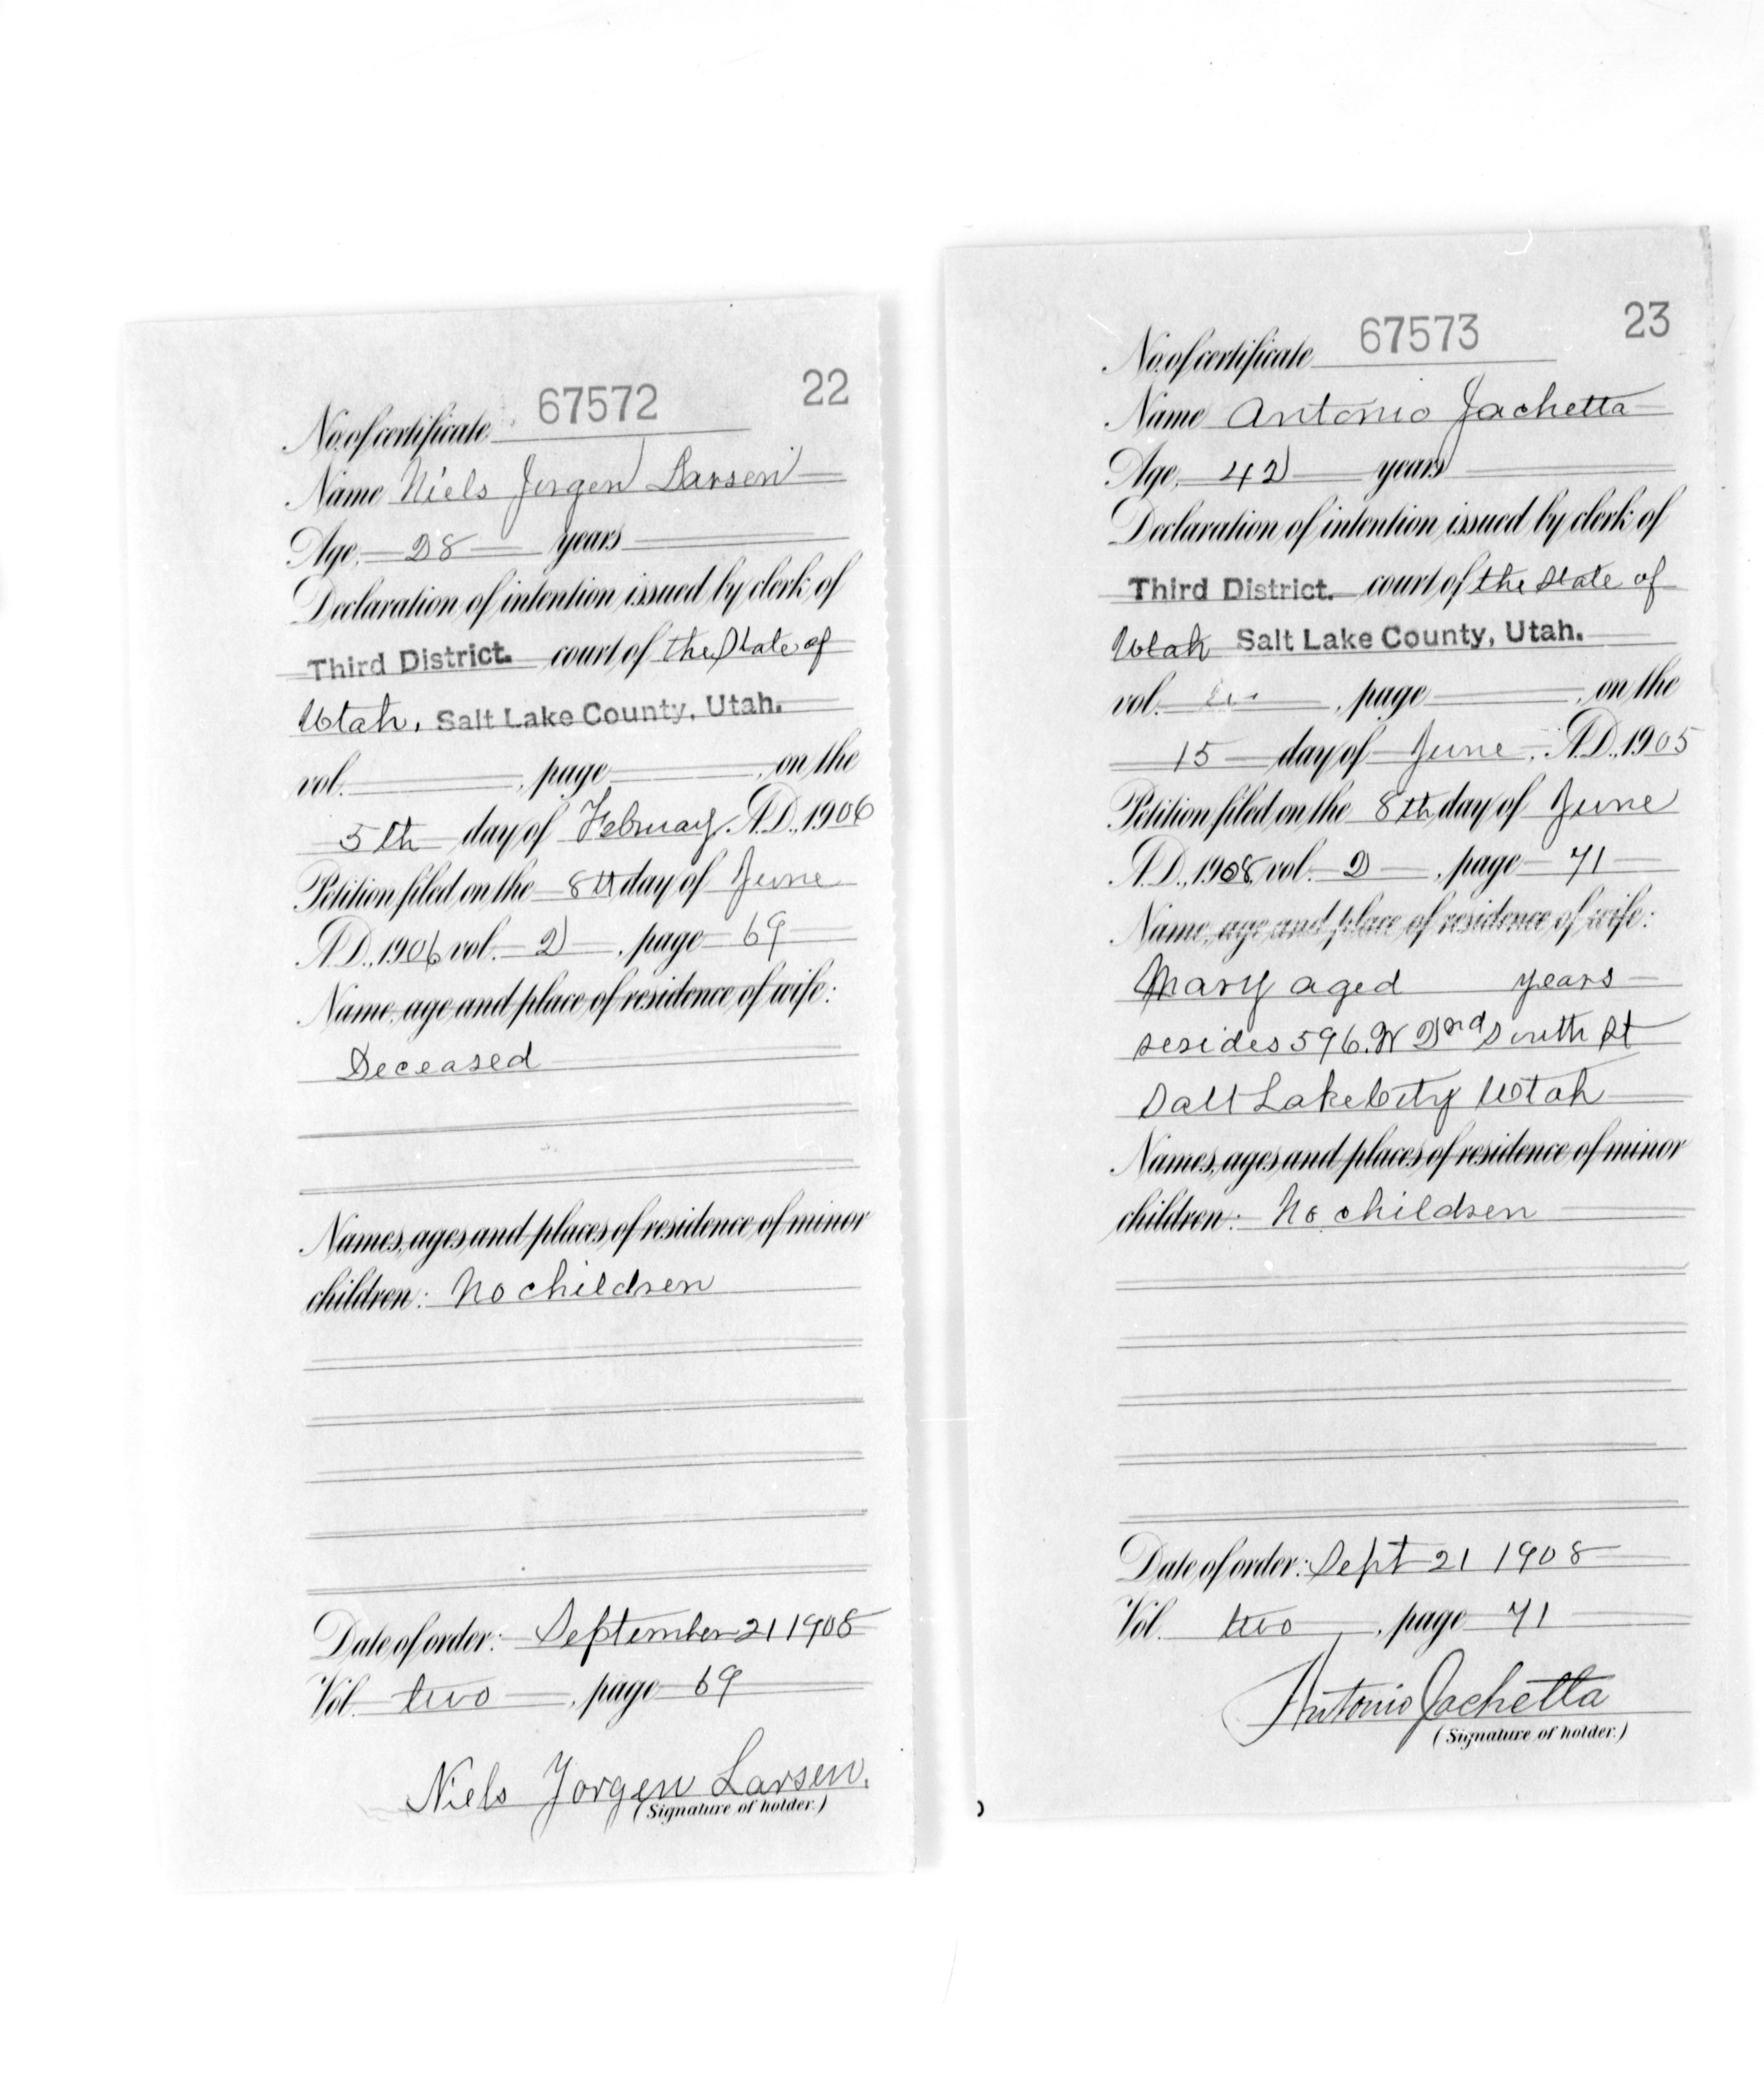 No. of certificate 67572 22
Name Niels Jorgen Larsen
Age, 28 years
Declaration of intention issued by clerk of
Third District. court of the State of
Utah, Salt Lake County, Utah.
vol. , page , on the
5th day of February, A.D., 1906
Petition filed on the 8th day of June
A.D., 1906 vol. 2 , page 69
Name, age and place of residence of wife:
Deceased
Names, ages and places of residence of minor
children: No children
Date of order: September 21 1908
Vol. two , page 69
Niels Jorgen Larsen.
(Signature of holder.)
No. of certificate 67573 23
Name Antonio Jachetta
Age, 42 years
Declaration of intention issued by clerk of
Third District. court of the State of
Utah Salt Lake County, Utah.
vol. , page , on the
15 day of June, A.D., 1905
Petition filed on the 8th day of June
A.D., 1908, vol. 2 , page 71
Name, age and place of residence of wife:
Mary aged years
resides 596. W 2nd South St
Salt Lake City Utah
Names, ages and places of residence of minor
children: No children
Date of order: Sept 21 1908
Vol. two , page 71
Antonio Jachetta
(Signature of holder.)